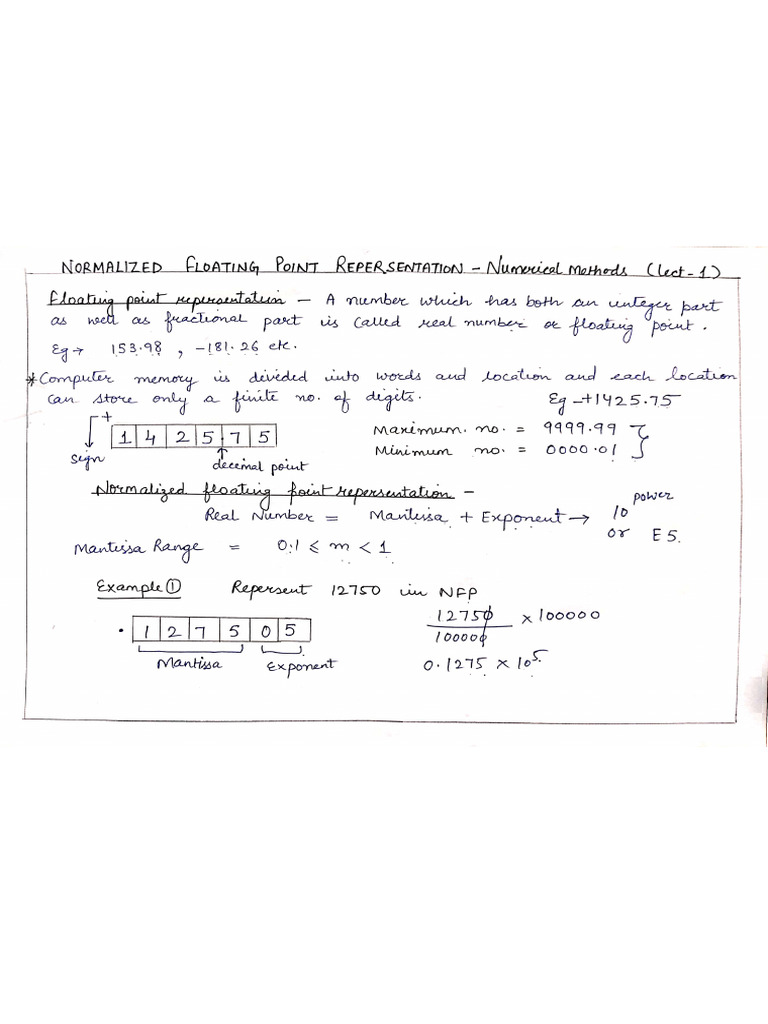 NORMALIZED FLOATING POINT REPERSENTATION - Numerical Methods (Lect-1)
Floating point repersentation - A number which has both an integer part
as well as fractional part is called real number or floating point.
Eg → 153.98 , -181.26 etc.
* Computer memory is devided into words and location and each location
can store only a finite no. of digits. Eg - +1425.75
+
1 4 2 5 7 5 Maximum. no. = 9999.99
sign decimal point Minimum no. = 0000.01
Normalized floating point repersentation -
Real Number = Mantissa + Exponent → 10 power
or E5.
Mantissa Range = 0.1 ⩽ m < 1
Example ① Repersent 12750 in NFP
. 1 2 7 5 0 5 12750 / 100000 × 100000
Mantissa Exponent 0.1275 × 10^5.